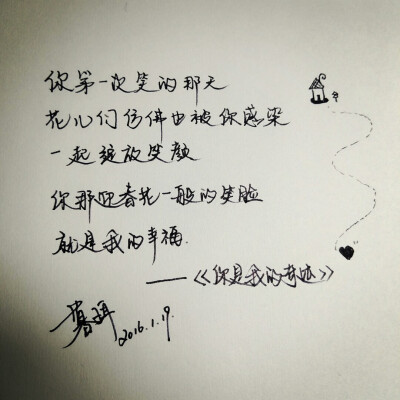 你第一次笑的那天
花儿们仿佛也被你感染
一起绽放笑颜
你那迎春花一般的笑脸
就是我的幸福.
——《你是我的奇迹》
2016.1.19.